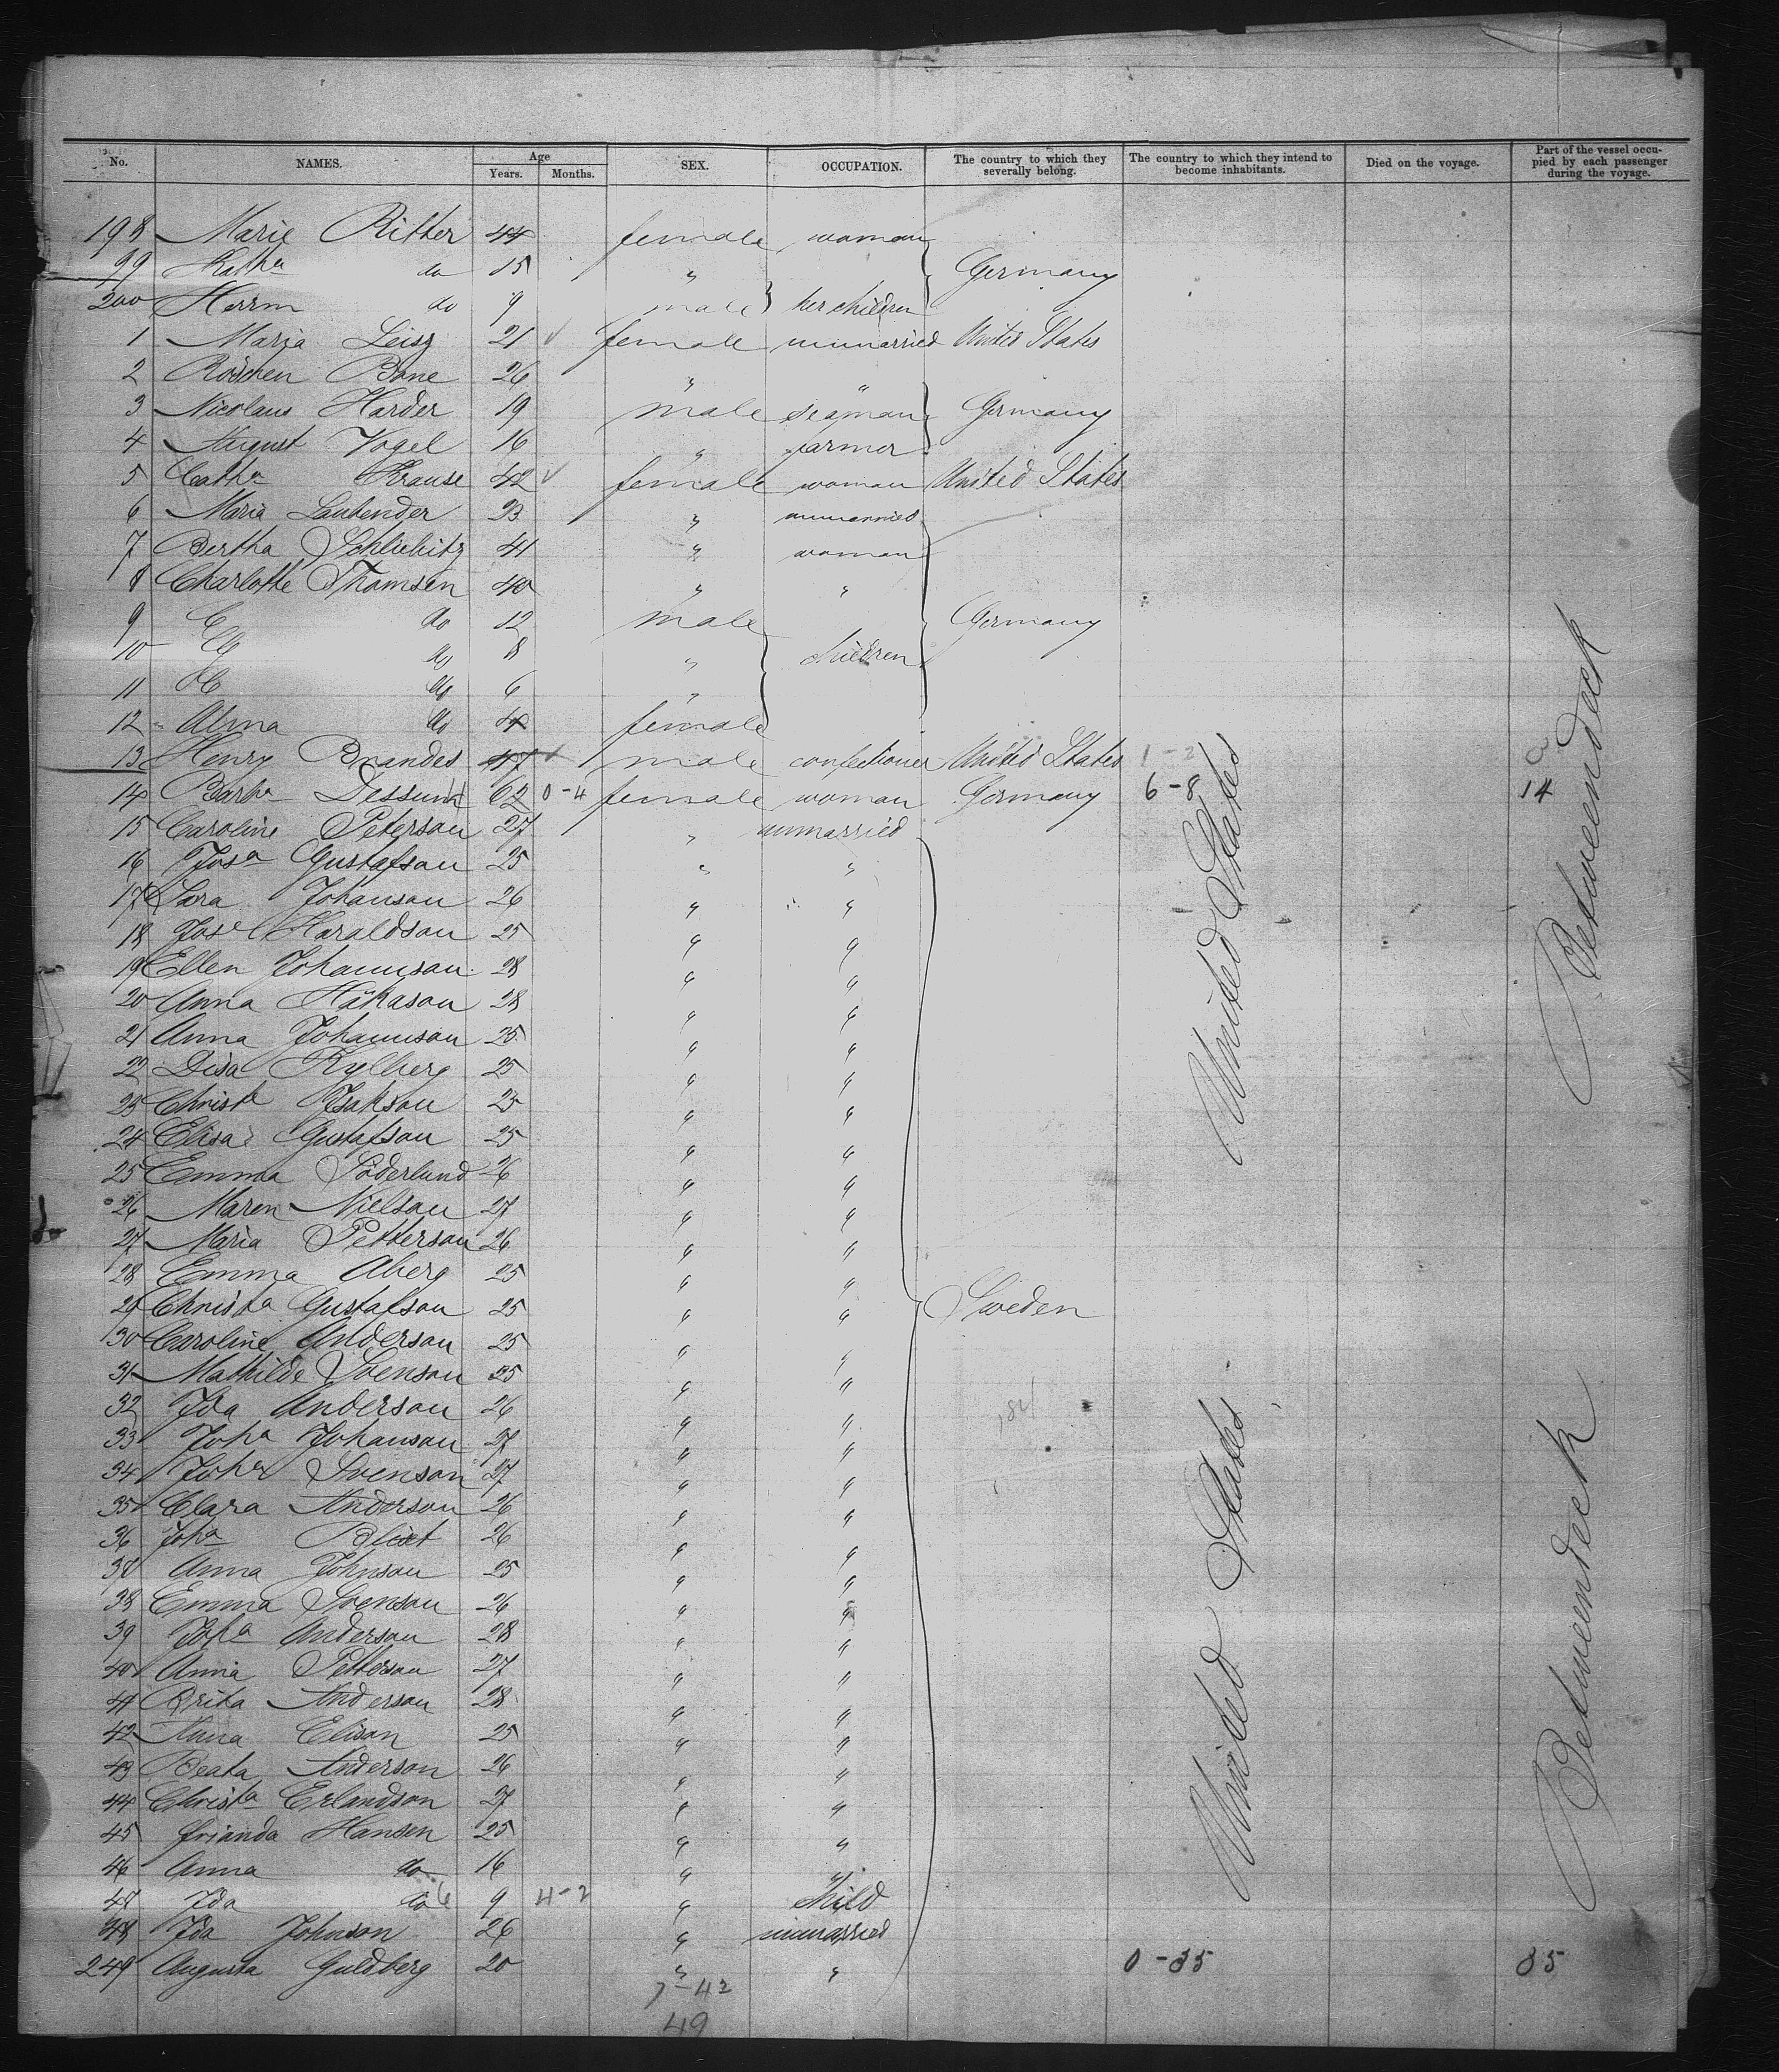 No. NAMES. Age Years. Months. SEX. OCCUPATION. The country to which they severally belong. The country to which they intend to become inhabitants. Died on the voyage. Part of the vessel occupied by each passenger during the voyage.
198 Marie Ritter 44 female woman
99 Katha do 15 " Germany
200 Herrm do 9 male her children
1 Maria Leisz 21 female unmarried United States
2 Röschen Bone 26 " "
3 Nicolaus Harder 19 male seaman Germany
4 August Vogel 16 " farmer
5 Catha Krause 42 female woman United States
6 Maria Laubender 23 " unmarried
7 Bertha Schliebitz 41 " woman
8 Charlotte Thomsen 40 " "
9 C do 12 male Germany
10 do 8 " children
11 do 6 "
12 Alma do 4 female
13 Henry Brandes 47 male confectioner United States 1-2
14 Barba 62 0-4 female woman Germany 6-8 14
15 Caroline Peterson 27 " unmarried
16 Josa Gustafson 25 " "
17 Sara Johanson 26 " "
18 Haraldson 25 " "
19 Ellen Johannson 28 " "
20 Anna Håkason 28 " "
21 Anna Johannson 25 " "
22 Disa Kylberg 25 " "
23 Christa Isakson 25 " "
24 Elisa Gustafson 25 " "
25 Emma Söderlund 26 " "
26 Maren Nielson 27 " "
27 Maria Petterson 26 " "
28 Emma Aberg 25 " "
29 Christa Gustafson 25 " " Sweden
30 Caroline Anderson 25 " "
31 Mathilde Svenson 25 " "
32 Ida Anderson 26 " "
33 Joha Johanson 27 " "
34 Joha Svenson 27 " "
35 Clara Anderson 26 " "
36 Joha Blixt 26 " "
37 Anna Johnson 25 " "
38 Emma Svenson 26 " "
39 Joha Anderson 28 " "
40 Anna Petterson 27 " "
41 Brita Anderson 28 " "
42 Anna Elison 25 " "
43 Beata Anderson 26 " "
44 Christa Erlandson 27 " "
45 Frianda Hansen 25 " "
46 Anna do 16 " "
47 Ida do 9 4-2 " child
48 Ida Johnson 26 " unmarried
249 Augusta Guldberg 20 " " 0-35 35
7-42
49
United States
United States
Betweendeck
Betweendeck